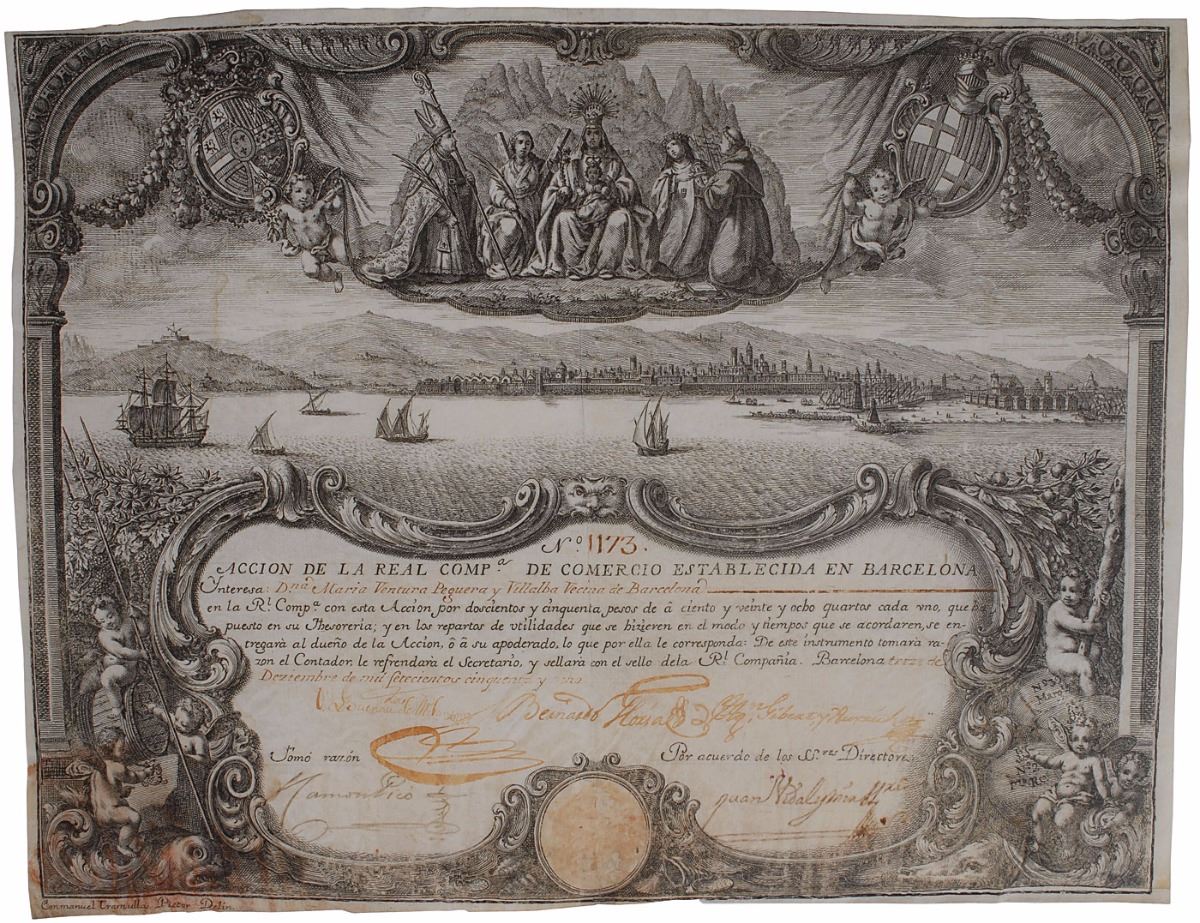 Nº. 1173.
ACCION DE LA REAL COMPª. DE COMERCIO ESTABLECIDA EN BARCELONA
Ynteresa Dnª. Maria Ventura Peguera y Villalba Vecina de Barcelona
en la Rl. Compª con esta Acción por doscientos y cinquenta pesos de â ciento y veinte y ocho quartos cada vno, que ha
puesto en su Thesoreria; y en los repartos de vtilidades que se hizieren en el modo y tiempos que se acordaren, se en-
tregarà al dueño de la Accion, ô â su apoderado, lo que por ella le corresponda: De este instrumento tomarà ra-
zon el Contador, le refrendarà el Secretario, y sellarà con el sello dela Rl. Compañia. Barcelona treze de
Deziembre de mil setecientos cinquenta y
Bernardo Gloria
Tomó razón
Por acuerdo de los Ss.res Directores
Ramon Picó
Juan Vidal y
Emmanuel Tramulla Pictor Delin.